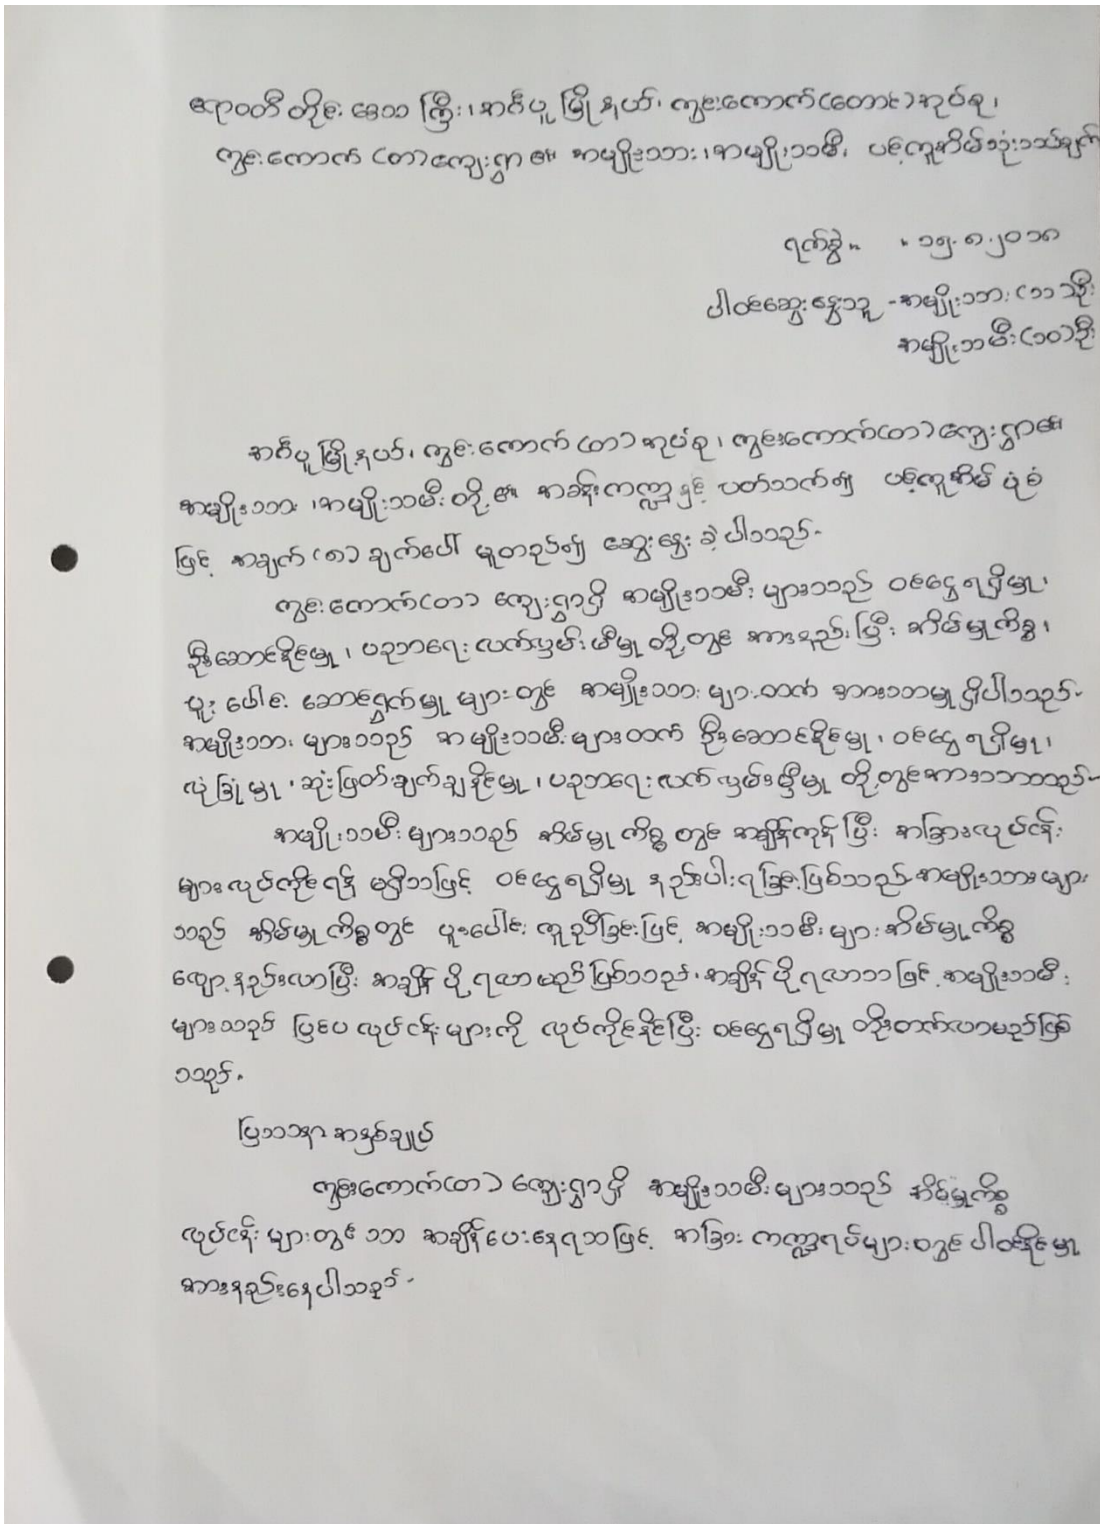 ဧရာဝတီ တိုင်း ဒေသ ကြီး၊ အင်္ဂပူ မြို့နယ်၊ ကွင်းကောက်(တောင်)အုပ်စု၊
ကွင်းကောက် (တ) ကျေးရွာ ၏ အမျိုးသား၊ အမျိုးသမီး ပင့်ကူအိမ်သုံးသပ်ချက်
ရက်စွဲ ။ ။ ၁၅.၈.၂၀၁၈
ပါဝင်ဆွေးနွေးသူ - အမျိုးသား (၁၁) ဦး
အမျိုးသမီး (၁၀) ဦး
အင်္ဂပူ မြို့နယ်၊ ကွင်းကောက် (တ) အုပ်စု၊ ကွင်းကောက်(တ) ကျေးရွာ၏
အမျိုးသား၊ အမျိုးသမီး တို့၏ အခန်းကဏ္ဍ နှင့် ပတ်သက်၍ ပင့်ကူအိမ် ပုံစံ
ဖြင့် အချက် (၈) ချက်ပေါ် မူတည်၍ ဆွေးနွေး ခဲ့ပါသည်.
ကွင်းကောက်(တ) ကျေးရွာရှိ အမျိုးသမီး များသည် ဝင်ငွေရရှိမှု၊
ဦးဆောင်နိုင်မှု၊ ပညာရေး လက်လှမ်းမီမှု တို့တွင် အားနည်း ပြီး အိမ်မှုကိစ္စ၊
ပူးပေါင်း ဆောင်ရွက်မှု များတွင် အမျိုးသား များထက် အားသာမှု ရှိပါသည်.
အမျိုးသား များသည် အမျိုးသမီးများထက် ဦးဆောင်နိုင်မှု၊ ဝင်ငွေရရှိမှု၊
လုံခြုံမှု၊ ဆုံးဖြတ်ချက်ချနိုင်မှု၊ ပညာရေး လက်လှမ်းမှီမှု တို့တွင်အားသာသည်.
အမျိုးသမီးများသည် အိမ်မှုကိစ္စ တွင် အချိန်ကုန် ပြီး အခြားလုပ်ငန်း
များလုပ်ကိုင်ရန် မရှိသဖြင့် ဝင်ငွေရရှိမှု နည်းပါးရခြင်းဖြစ်သည်. အမျိုးသားများ
သည် အိမ်မှုကိစ္စတွင် ပူးပေါင်း ကူညီခြင်းဖြင့် အမျိုးသမီးများ အိမ်မှုကိစ္စ
လျော့နည်းလာပြီး အချိန် ပိုရလာမည်ဖြစ်သည်. အချိန် ပိုရလာသဖြင့် အမျိုးသမီး
များသည် ပြင်ပ လုပ်ငန်းများကို လုပ်ကိုင်နိုင်ပြီး ဝင်ငွေရရှိမှု တိုးတက်လာမည်ဖြစ်
သည်.
ပြဿနာ အနှစ်ချုပ်
ကွင်းကောက်(တ) ကျေးရွာရှိ အမျိုးသမီးများသည် အိမ်မှုကိစ္စ
လုပ်ငန်း များတွင် သာ အချိန်ပေးနေရသဖြင့် အခြား ကဏ္ဍရပ်များတွင် ပါဝင်နိုင်မှု
အားနည်းနေပါသည်.